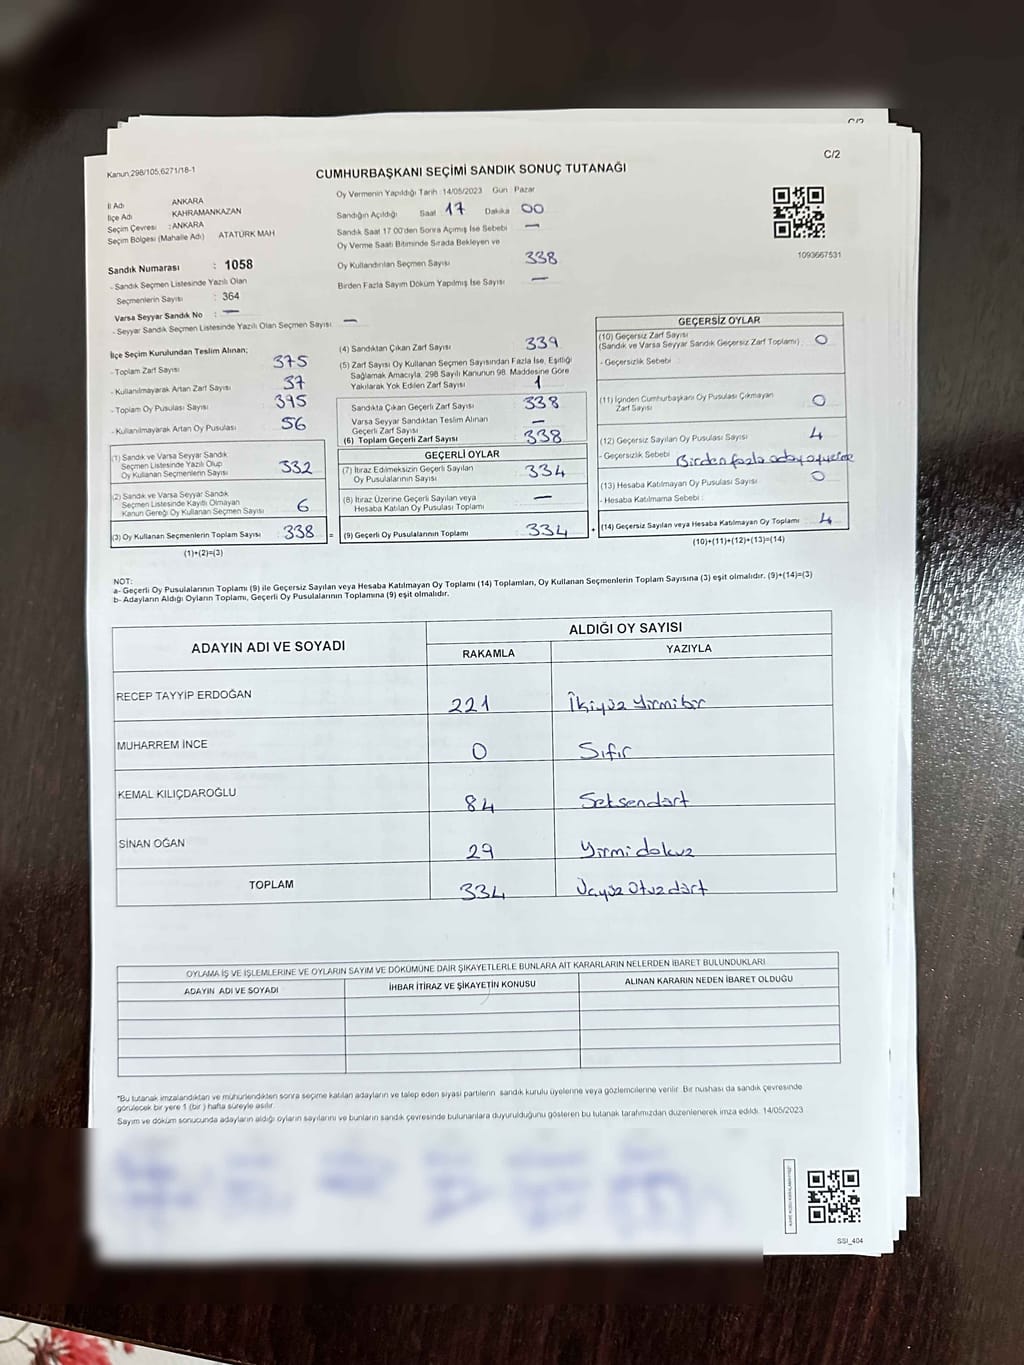 C/2
C/2
Kanun,298/105,6271/18-1
CUMHURBAŞKANI SEÇİMİ SANDIK SONUÇ TUTANAĞI
İl Adı ANKARA
İlçe Adı KAHRAMANKAZAN
Seçim Çevresi : ANKARA
Seçim Bölgesi (Mahalle Adı) ATATÜRK MAH
Sandık Numarası : 1058
- Sandık Seçmen Listesinde Yazılı Olan
Seçmenlerin Sayısı : 364
Varsa Seyyar Sandık No : —
- Seyyar Sandık Seçmen Listesinde Yazılı Olan Seçmen Sayısı —
Oy Vermenin Yapıldığı Tarih : 14/05/2023 Gün : Pazar
Sandığın Açıldığı Saat 17 Dakika 00
Sandık Saat 17:00'den Sonra Açımış İse Sebebi —
Oy Verme Saati Bitiminde Sırada Bekleyen ve
Oy Kullandırılan Seçmen Sayısı 338
Birden Fazla Sayım Döküm Yapılmış İse Sayısı —
1093667531
İlçe Seçim Kurulundan Teslim Alınan;
- Toplam Zarf Sayısı 375
- Kullanılmayarak Artan Zarf Sayısı 37
- Toplam Oy Pusulası Sayısı 395
- Kullanılmayarak Artan Oy Pusulası 56
(1) Sandık ve Varsa Seyyar Sandık
Seçmen Listesinde Yazılı Olup
Oy Kullanan Seçmenlerin Sayısı 332
(2) Sandık ve Varsa Seyyar Sandık
Seçmen Listesinde Kayıtlı Olmayan
Kanun Gereği Oy Kullanan Seçmen Sayısı 6
(3) Oy Kullanan Seçmenlerin Toplam Sayısı 338 =
(1)+(2)=(3)
(4) Sandıktan Çıkan Zarf Sayısı 339
(5) Zarf Sayısı Oy Kullanan Seçmen Sayısından Fazla İse, Eşitliği
Sağlamak Amacıyla, 298 Sayılı Kanunun 98. Maddesine Göre
Yakılarak Yok Edilen Zarf Sayısı 1
Sandıkta Çıkan Geçerli Zarf Sayısı 338
Varsa Seyyar Sandıktan Teslim Alınan
Geçerli Zarf Sayısı —
(6) Toplam Geçerli Zarf Sayısı 338
GEÇERLİ OYLAR
(7) İtiraz Edilmeksizin Geçerli Sayılan
Oy Pusulalarının Sayısı 334
(8) İtiraz Üzerine Geçerli Sayılan veya
Hesaba Katılan Oy Pusulası Toplamı —
(9) Geçerli Oy Pusulalarının Toplamı 334 +
GEÇERSİZ OYLAR
(10) Geçersiz Zarf Sayısı
(Sandık ve Varsa Seyyar Sandık Geçersiz Zarf Toplamı) 0
- Geçersizlik Sebebi :
(11) İçinden Cumhurbaşkanı Oy Pusulası Çıkmayan
Zarf Sayısı 0
(12) Geçersiz Sayılan Oy Pusulası Sayısı 4
- Geçersizlik Sebebi Birden fazla aday
(13) Hesaba Katılmayan Oy Pusulası Sayısı 0
- Hesaba Katılmama Sebebi :
(14) Geçersiz Sayılan veya Hesaba Katılmayan Oy Toplamı 4
(10)+(11)+(12)+(13)=(14)
NOT:
a- Geçerli Oy Pusulalarının Toplamı (9) ile Geçersiz Sayılan veya Hesaba Katılmayan Oy Toplamı (14) Toplamları, Oy Kullanan Seçmenlerin Toplam Sayısına (3) eşit olmalıdır. (9)+(14)=(3)
b- Adayların Aldığı Oyların Toplamı, Geçerli Oy Pusulalarının Toplamına (9) eşit olmalıdır.
ADAYIN ADI VE SOYADI ALDIĞI OY SAYISI
RAKAMLA YAZIYLA
RECEP TAYYİP ERDOĞAN 221 İkiyüz yirmibir
MUHARREM İNCE 0 Sıfır
KEMAL KILIÇDAROĞLU 84 Seksendört
SİNAN OĞAN 29 Yirmidokuz
TOPLAM 334 Üçyüz otuzdört
OYLAMA İŞ VE İŞLEMLERİNE VE OYLARIN SAYIM VE DÖKÜMÜNE DAİR ŞİKAYETLERLE BUNLARA AİT KARARLARIN NELERDEN İBARET BULUNDUKLARI
ADAYIN ADI VE SOYADI İHBAR İTİRAZ VE ŞİKAYETİN KONUSU ALINAN KARARIN NEDEN İBARET OLDUĞU
*Bu tutanak imzalandıktan ve mühürlendikten sonra seçime katılan adayların ve talep eden siyasi partilerin sandık kurulu üyelerine veya gözlemcilerine verilir. Bir nüshası da sandık çevresinde
görülecek bir yere 1 (bir) hafta süreyle asılır.
Sayım ve döküm sonucunda adayların aldığı oyların sayılarını ve bunların sandık çevresinde bulunanlara duyurulduğunu gösteren bu tutanak tarafımızdan düzenlenerek imza edildi. 14/05/2023
SSI_404